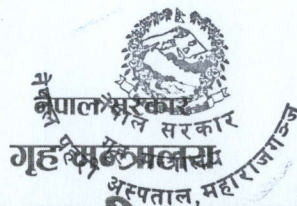 नेपाल सरकार
गृह मन्त्रालय
नेपाल सरकार
गृह मन्त्रालय
अस्पताल, महाराजगञ्ज